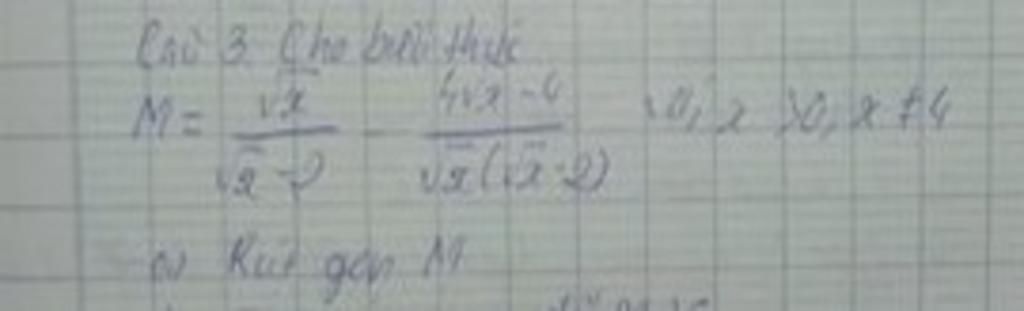 Câu 3 Cho biểu thức
M = √x / √x - 2 - 4√x - 4 / √x (√x - 2) x > 0, x ≠ 4
a) Rút gọn M